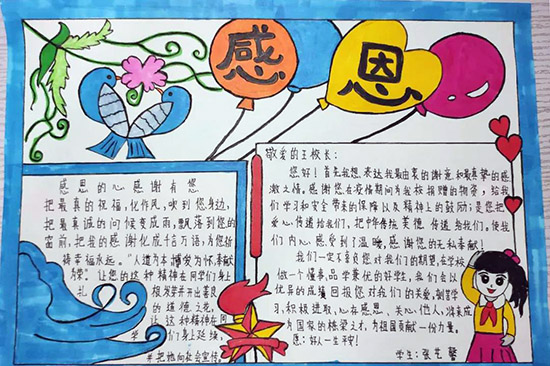 感恩
感恩的心感谢有您
把最真的祝福,化作风,吹到您身边,
把最真诚的问候变成雨,飘落到您的
窗前,把我的感谢化成千言万语,为您祈
祷幸福永远。“人道为本博爱为怀,奉献
为荣”让您的这种精神在同学们身上
扎
根发芽并开出善良
的道德之花。
让这种精神在同
学
们身上延续,
并把他向社会宣传。
敬爱的王校长:
您好!首先我想表达我最由衷的谢意和最真挚的感
激之情。感谢您在疫情期间为我校捐赠的物资,给我
们学习和安全带来的保障以及精神上的鼓励;是您把
爱心传递给我们,把中华传统美德传递给我们,使我
们内心感受到了温暖,感谢您的无私奉献!
我们一定不辜负您对我们的期望,在学校
做一个懂事,品学兼优的好学生,我们会以
优异的成绩回报您对我们的关爱,刻苦学
习,积极进取,心存感恩、关心他人,将来成
为国家的栋梁之才,为祖国贡献一份力量。
愿:好人一生平安!
学生:张艺馨